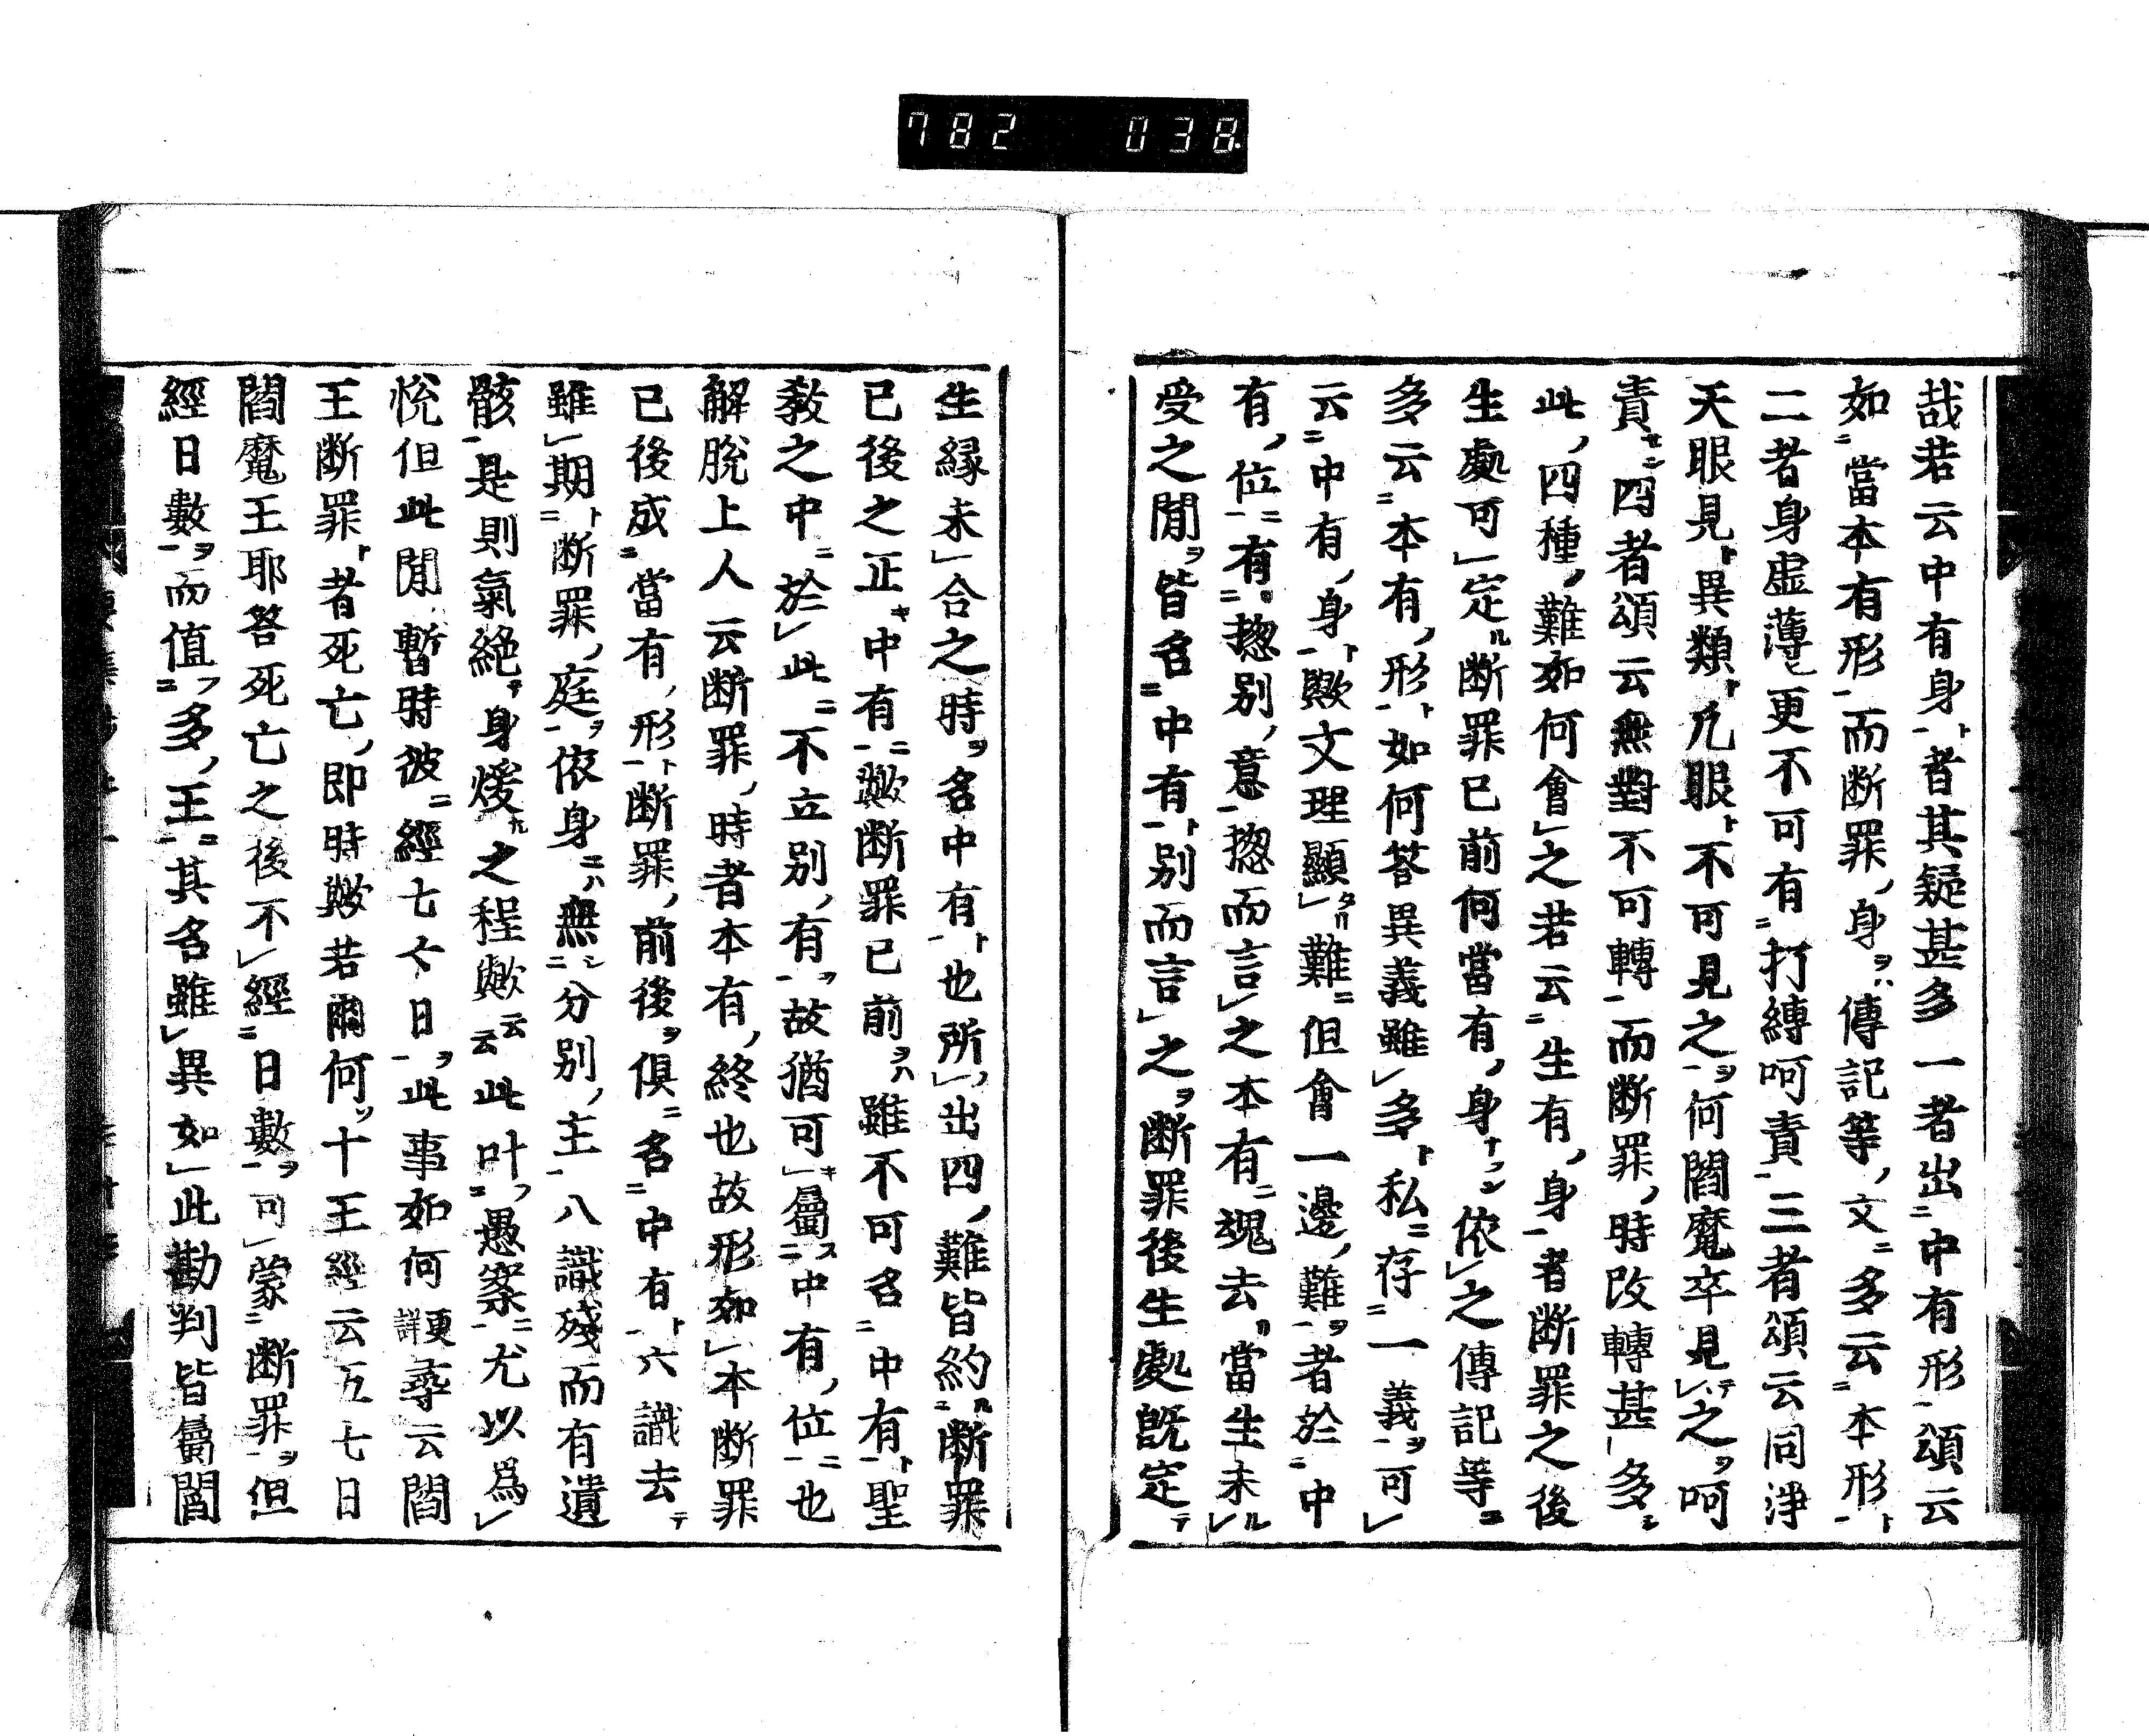 782 038
哉若云中有身者其疑甚多一者出中有形頌云
如當本有形而断罪身傳記等文多云本形
二者身虛薄更不可有打縛呵責三者頌云同淨
天眼見異類凡眼不可見之何閻魔卒見之呵
責四者頌云無對不可轉而断罪時改轉甚多
此四種難如何會之若云生有身者断罪之後
生處可定断罪已前何當有身依之傳記等
多云本有形如何荅異義雖多私存一義可
云中有身歟文理顯難但會一邊難者於中
有位有揔别意揔而言之本有魂去當生未
受之間皆名中有别而言之断罪後生處既定
生縁未合之時名中有也所出四難皆約断罪
已後之正中有歟断罪已前雖不可名中有聖
教之中於此不立别有故猶可屬中有位也
解脫上人云断罪時者本有終也故形如本断罪
已後成當有形断罪前後俱名中有六識去
雖期断罪庭依身無分别主八識殘而有遺
骸是則氣絶身煖之程歟云云此叶愚案尤以爲
悅但此間暫時彼經七七日此事如何更詳尋云閻
王断罪者死亡即時歟若爾何十王經云五七日
閻魔王耶荅死亡之後不經日數可蒙断罪但
經日數而值多王其名雖異如此勘判皆屬閻